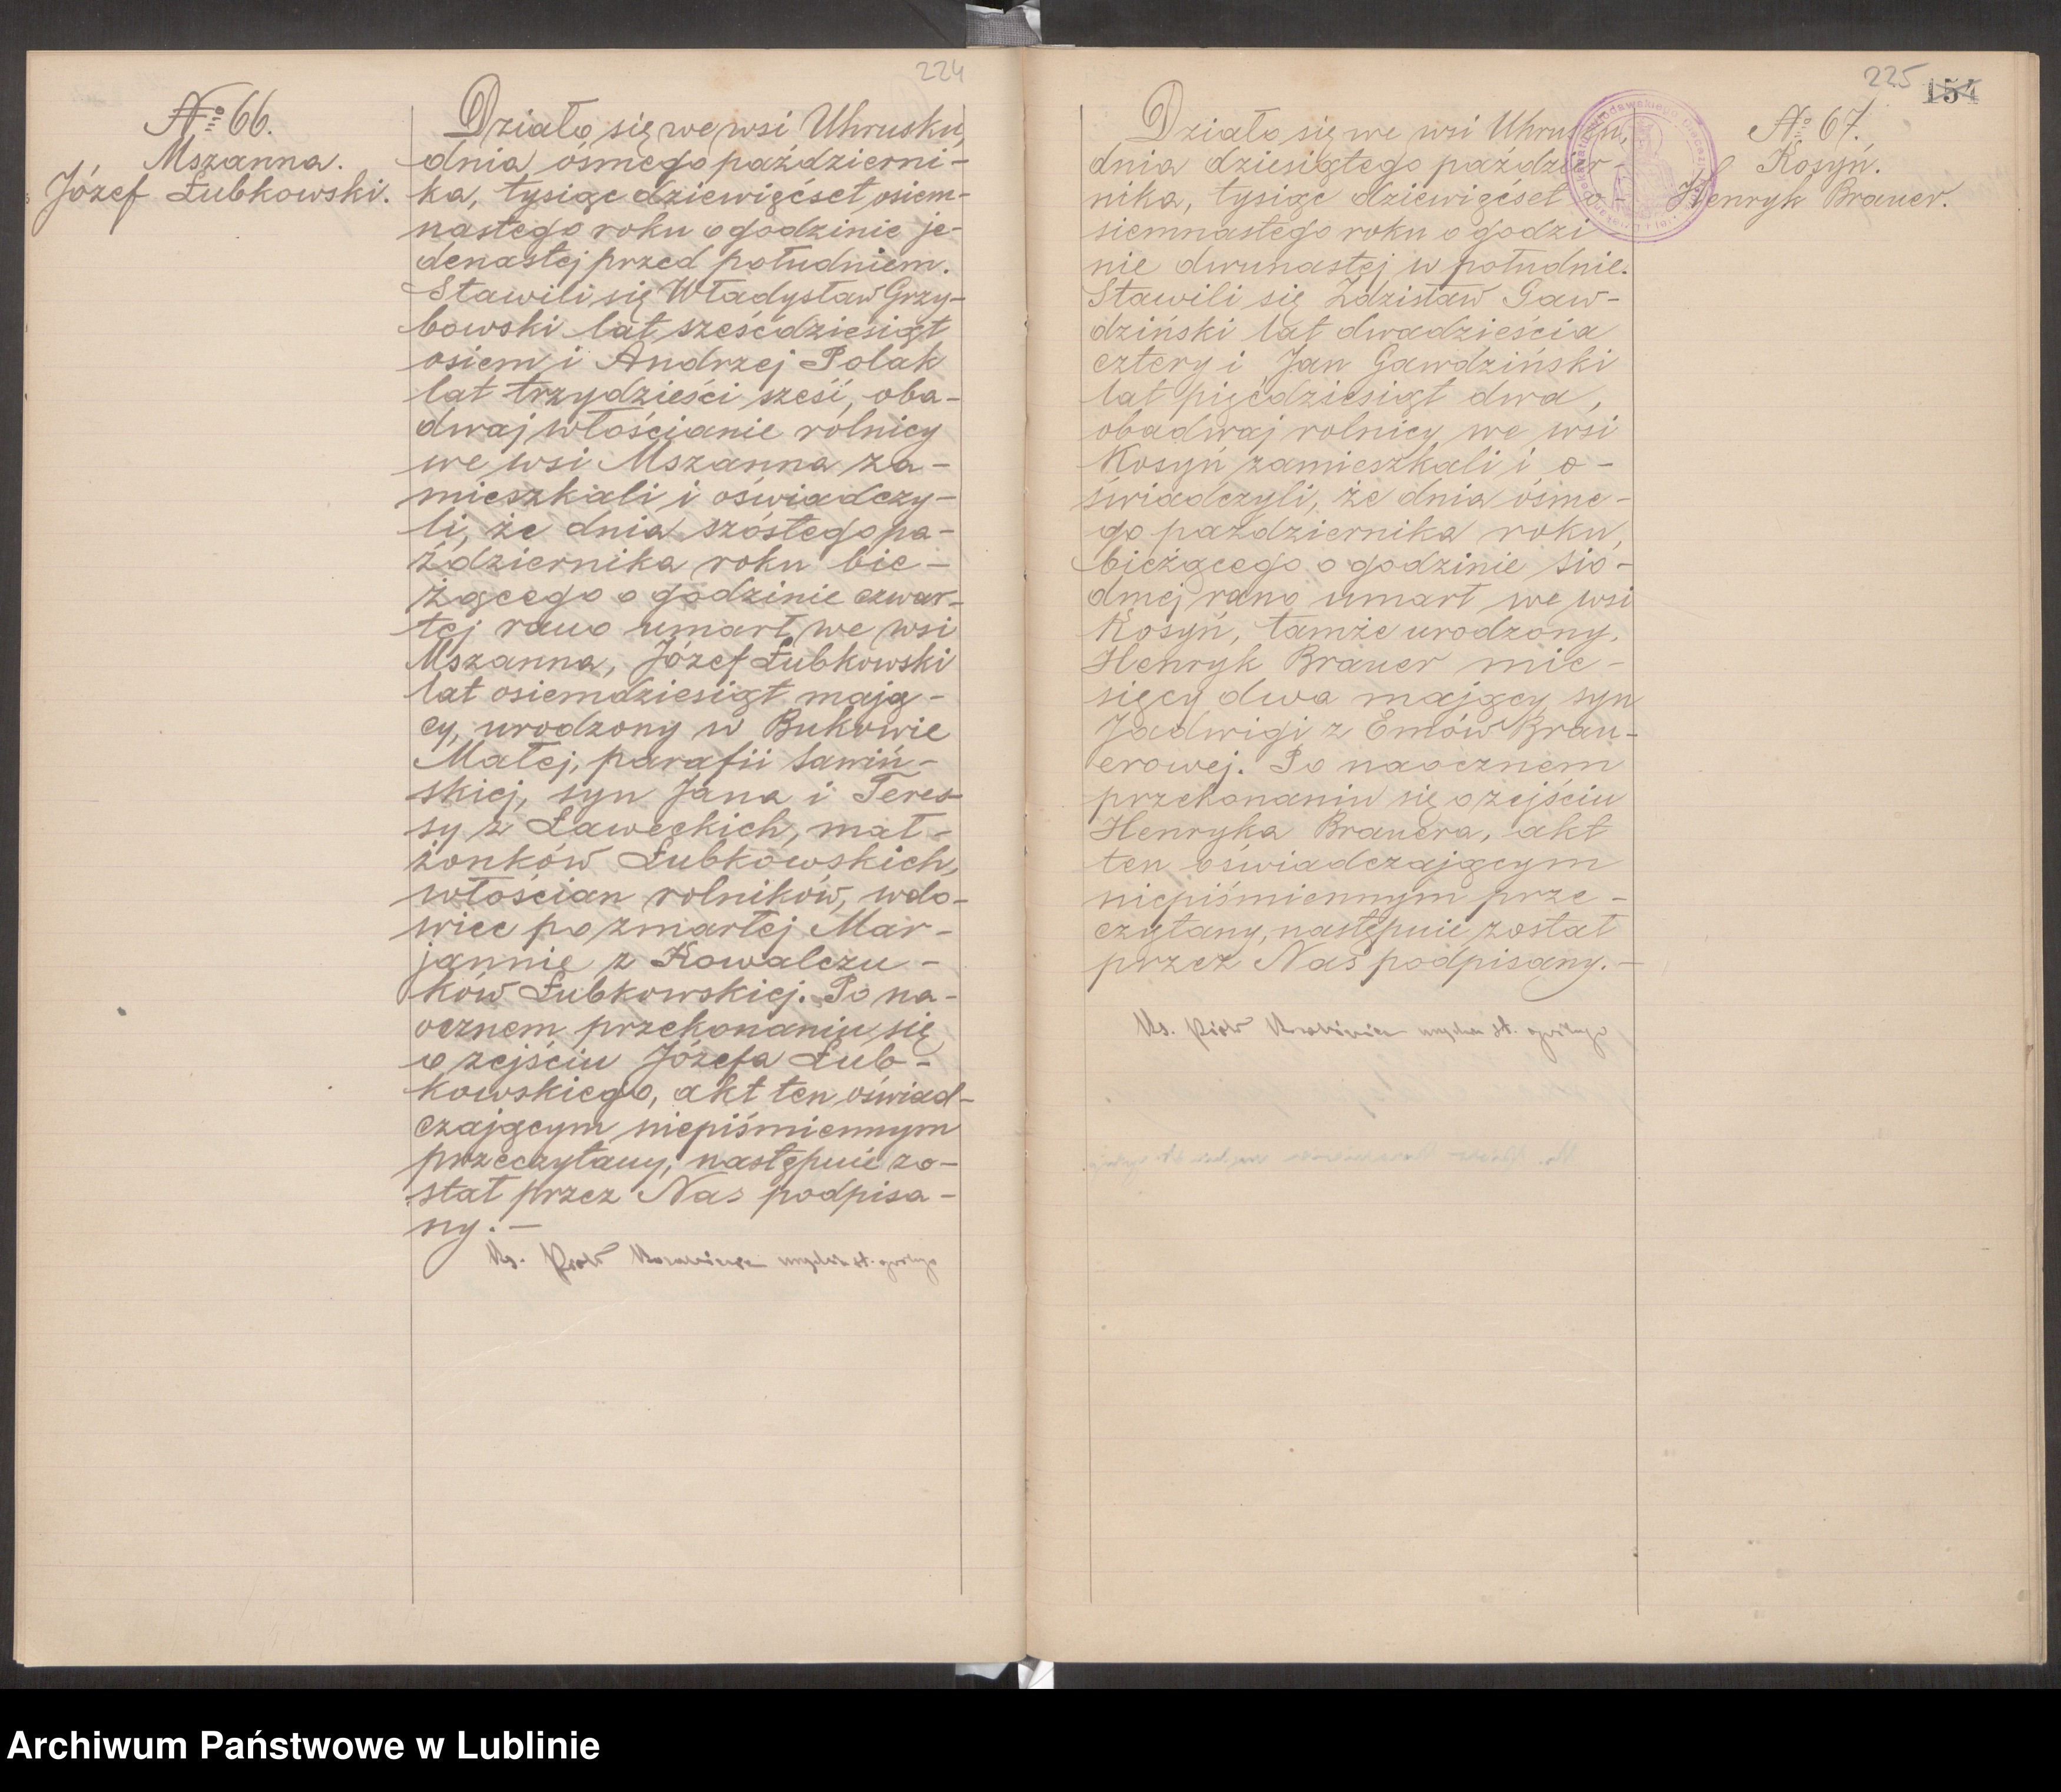 224
№ 66.
Mszanna.
Józef Łubkowski.
Działo się we wsi Uhrusku,
dnia ósmego październi-
ka, tysiąc dziewięćset osiem-
nastego roku o godzinie je-
denastej przed południem.
Stawili się Władysław Grzy-
bowski lat sześćdziesiąt
osiem i Andrzej Polak
lat trzydzieści sześć, oba-
dwaj włościanie rolnicy
we wsi Mszanna za-
mieszkali i oświadczy-
li, że dnia szóstego pa-
ździernika roku bie-
żącego o godzinie czwar-
tej rano umarł we wsi
Mszanna, Józef Łubkowski
lat osiemdziesiąt mają-
cy, urodzony w Bukowie
Małej, parafii Sawiń-
skiej, syn Jana i Teres-
sy z Ławeckich, mał-
żonków Łubkowskich,
włościan rolników, wdo-
wiec po zmarłej Mar-
jannie z Kowalczu-
ków Łubkowskiej. Po na-
ocznem przekonaniu się
o zejściu Józefa Łub-
kowskiego, akt ten oświad-
czającym niepiśmiennym
przeczytany, następnie zo-
stał przez Nas podpisa-
ny. —
Ks. Piotr
225
154
№ 67.
Kosyń.
Henryk Brauer.
Działo się we wsi Uhrusku,
dnia dziesiątego paździer-
nika, tysiąc dziewięćset o-
siemnastego roku o godzi
nie dwunastej w południe.
Stawili się Zdzisław Gaw-
dziński lat dwadzieścia
cztery i Jan Gawdziński
lat pięćdziesiąt dwa,
obadwaj rolnicy we wsi
Kosyń zamieszkali i o-
świadczyli, że dnia ósme-
go października roku
bieżącego o godzinie sió-
dmej rano umarł we wsi
Kosyń, tamże urodzony,
Henryk Brauer mie-
sięcy dwa mający syn
Jadwigi z Emów Brau-
erowej. Po naocznem
przekonaniu się o zejściu
Henryka Brauera, akt
ten oświadczającym
niepiśmiennym prze-
czytany, następnie został
przez Nas podpisany. —
Ks. Piotr
Archiwum Państwowe w Lublinie